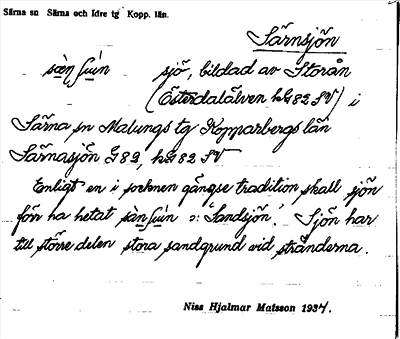 Särna sn Särna och Idre tg Kopp. län.
Särnsjön
sjö, bildad av Storån
(Österdalälven hk G82 SV) i
Särna sn Malungs tg Kopparbergs län
Särnasjön G82, hk G82 SV
Enligt en i socknen gängse tradition skall sjön
förr ha hetat sàn ɟuín ɔ: 'Sandsjön'. Sjön har
till större delen stora sandgrund vid stränderna.
Niss Hjalmar Matsson 1934.